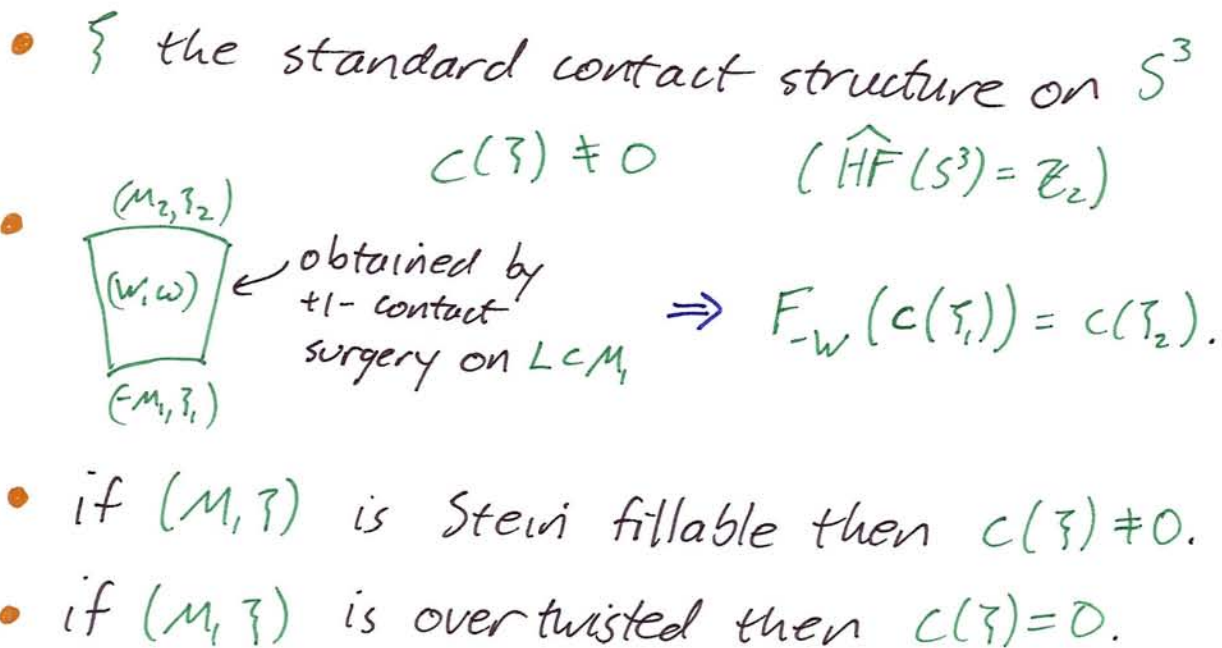 • ξ the standard contact structure on S³
c(ξ) ≠ 0 (ĤF(S³) = ℤ₂)
• (M₂, ξ₂)
(W, ω) ← obtained by
+1- contact
surgery on L ⊂ M₁
⇒ F₋w (c(ξ₁)) = c(ξ₂).
(-M₁, ξ₁)
• if (M, ξ) is Stein fillable then c(ξ) ≠ 0.
• if (M, ξ) is overtwisted then c(ξ) = 0.